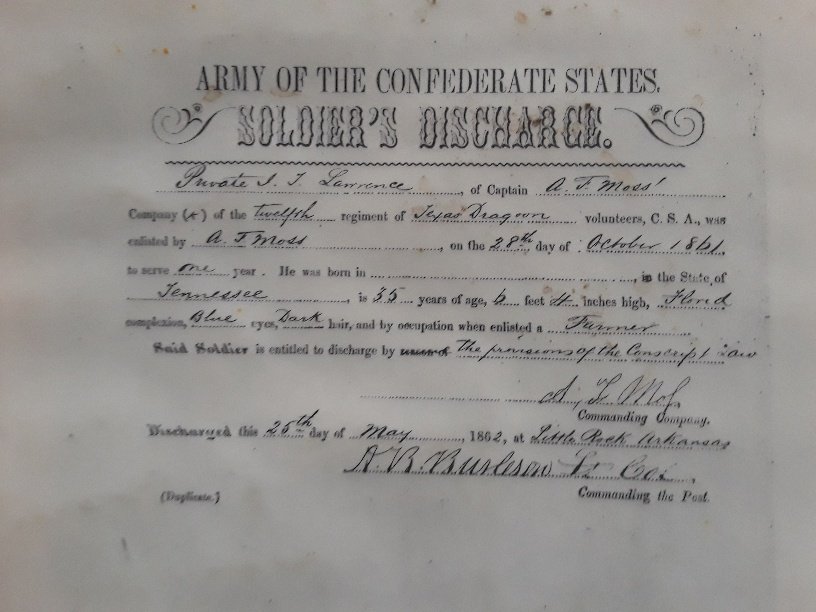 ARMY OF THE CONFEDERATE STATES.
SOLDIER'S DISCHARGE.
Private I. T. Lawrence, of Captain A. F. Moss'
Company () of the twelfth regiment of Texas Dragoon volunteers, C. S. A., was
enlisted by A. F Moss, on the 28th day of October 1861,
to serve one year. He was born in, in the State of
Tennessee, is 35 years of age, 6 feet 4 inches high, Florid
complexion, Blue eyes, Dark hair, and by occupation when enlisted a Farmer
Said Soldier is entitled to discharge by the provisions of the Conscript Law
A.
Commanding Company.
Discharged this 25th day of May, 1862, at Little Rock Arkansas
A. B. Burleson Lt Col.
(Duplicate.) Commanding the Post.